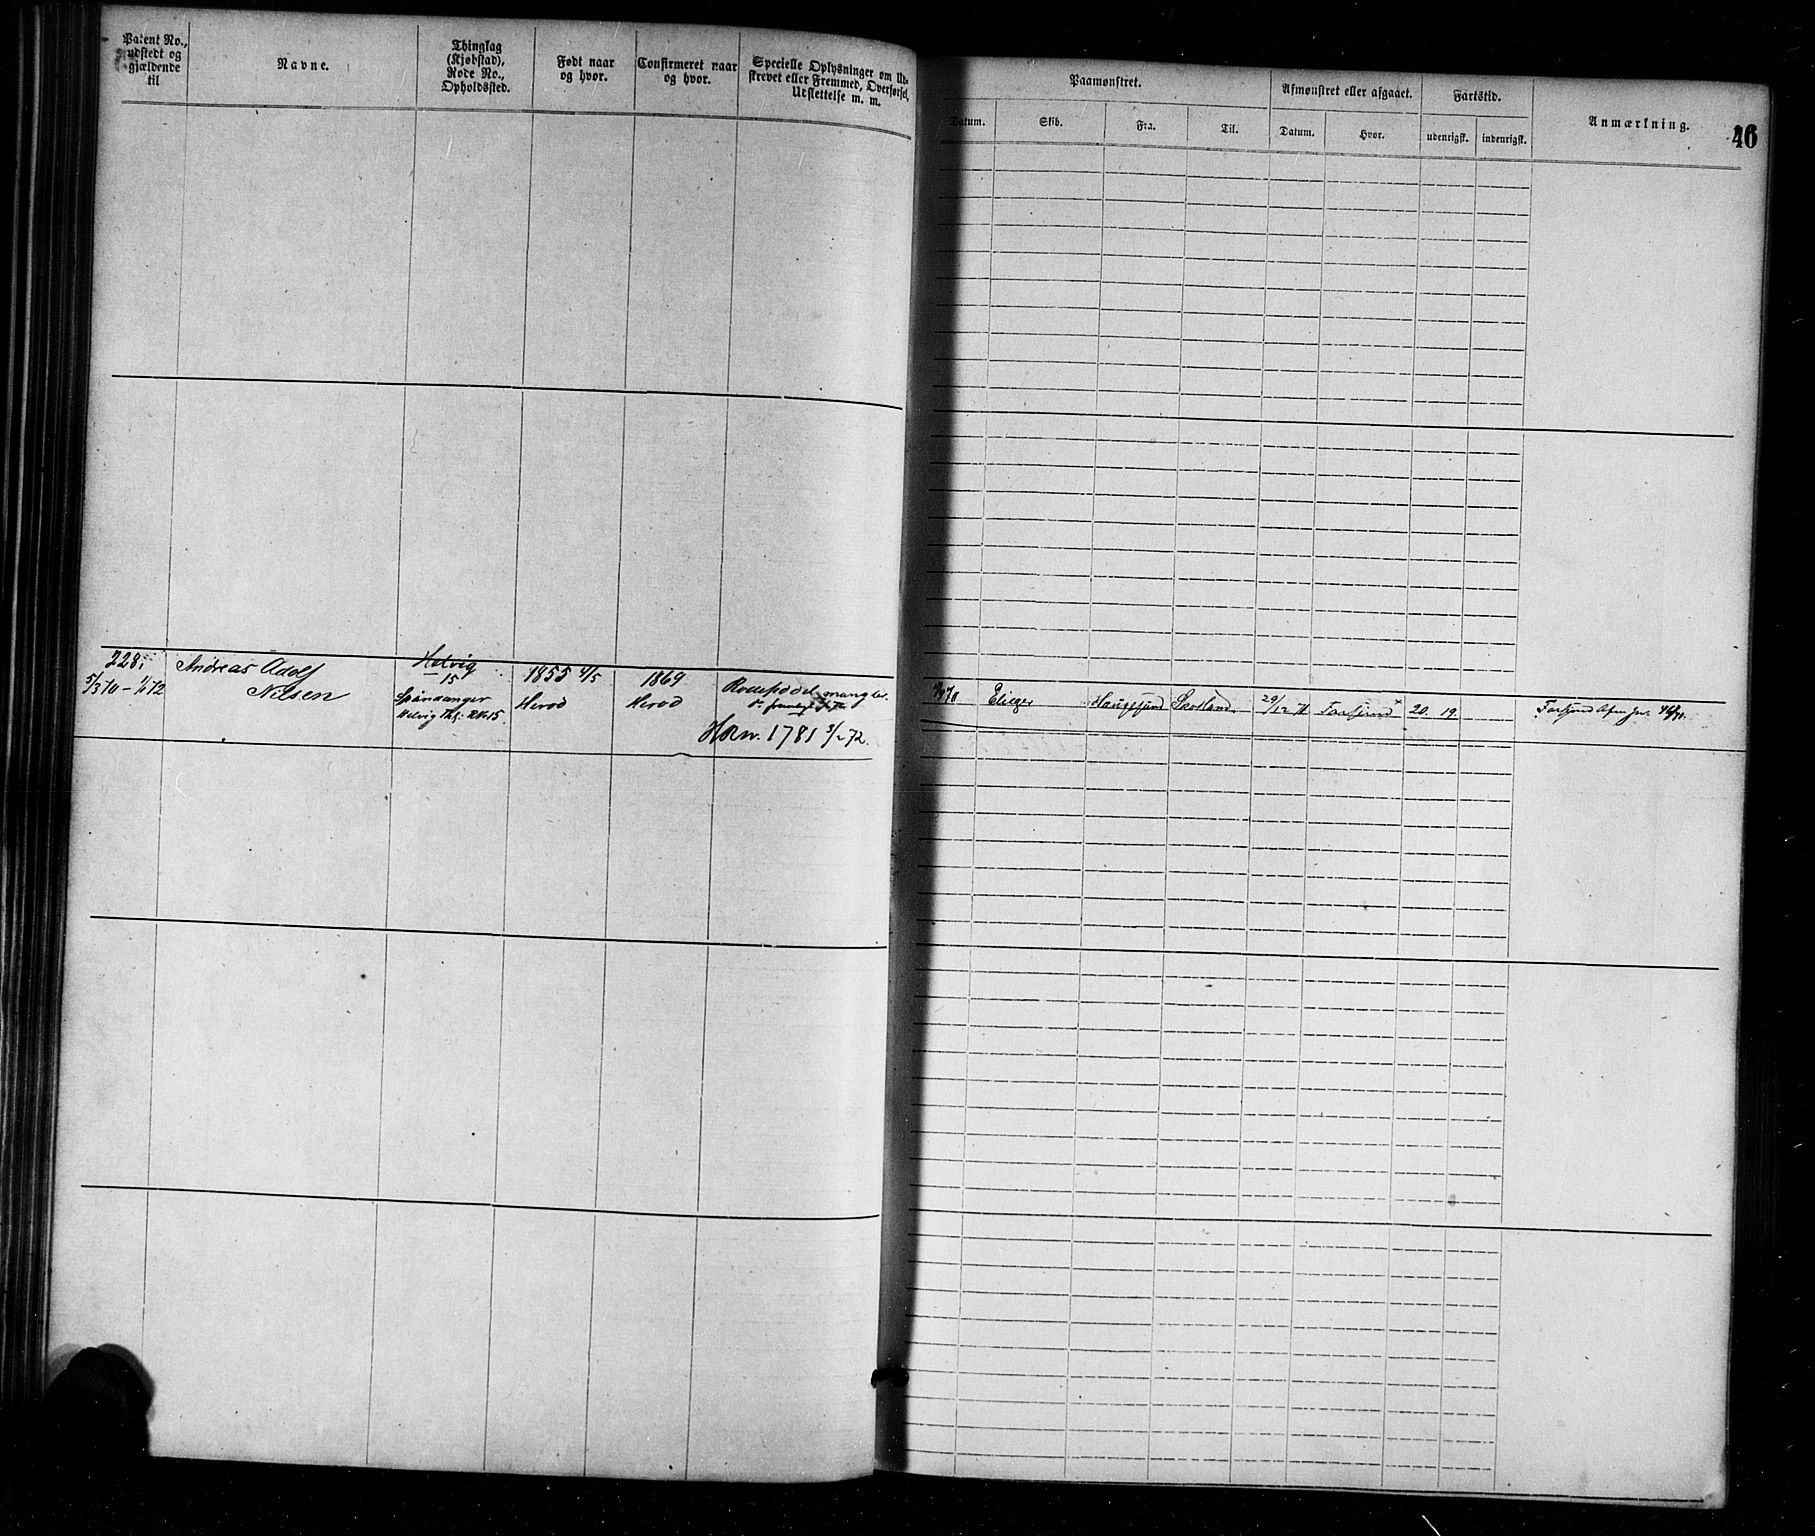 Patent No.,
udstedt og
gjældende
til
Navne.
Thinglag
(Kjøbstad),
Rode No.,
Opholdssted.
Født naar
og hvor.
Confirmeret naar
og hvor.
Specielle Oplysninger om Ud-
skrevet eller Fremmed, Overførsel,
Udslettelse m. m.
Paamønstret.
Datum.
Skib.
Fra.
Til.
Afmønstret eller afgaaet.
Datum.
Hvor.
Fartstid.
udenrigsk.
indenrigsk.
Anmærkning.
46
228.
5/3 70 - 1/1 72
Andreas Adolf
Nilsen
Helvig
15
Spindanger
Helvig Thl. RN 15.
1855 4/5
Herod
1869
Herod
Rodeseddel mangler.
HRN. 1781 3/2 72.
70
Eliezer
Haugesund
Skotland
29/12 71
Farsund
20.
19.
Farsund